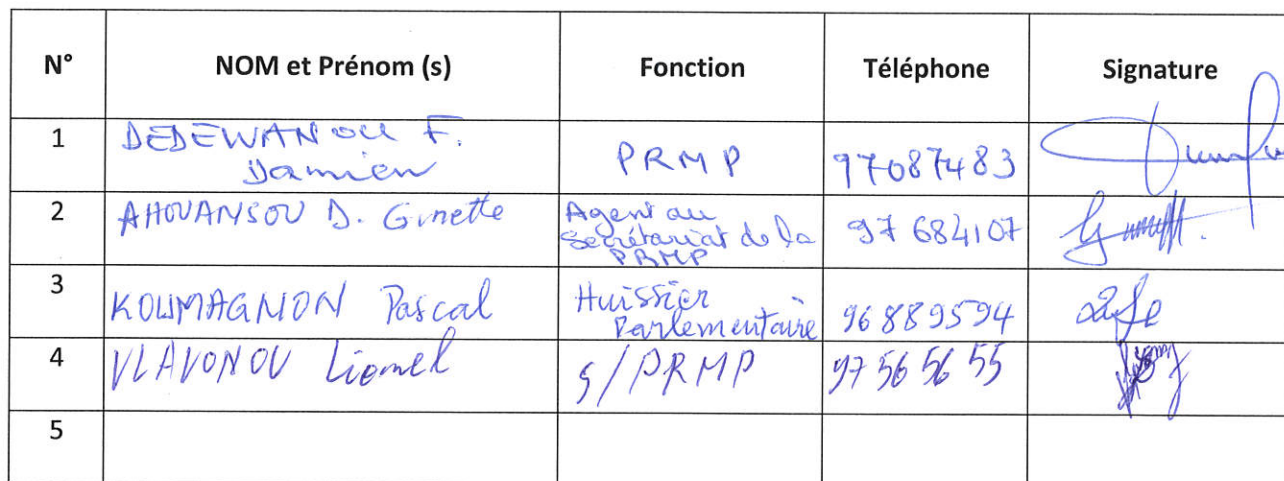 N° NOM et Prénom (s) Fonction Téléphone Signature
1 DEDEWANOU F.
Damien PRMP 97087483
2 AHOUANSOU D. Ginette Agent au
secrétariat de la
PRMP 97 684107
3 KOUMAGNON Pascal Huissier
Parlementaire 96 88 95 94
4 VLAVONOU Lionel S/PRMP 97 56 56 55
5